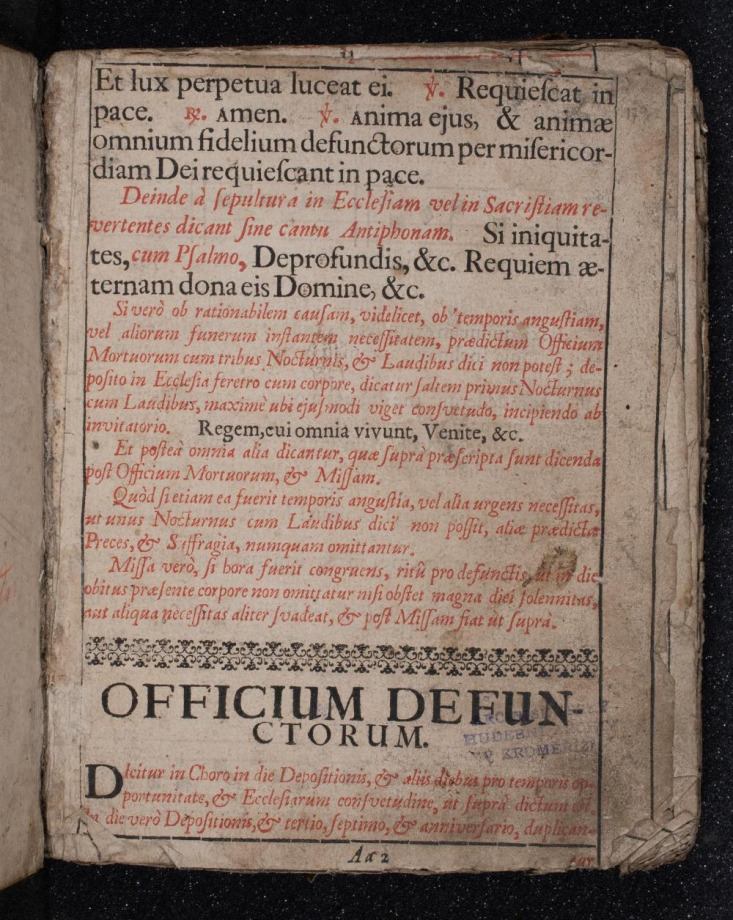 Et lux perpetua luceat ei. ℣. Requieſcat in
pace. ℟. Amen. ℣. Anima ejus, & animæ
omnium fidelium defunctorum per miſericor-
diam Dei requieſcant in pace.
Deinde à ſepultura in Eccleſiam vel in Sacriſtiam re-
vertentes dicant ſine cantu Antiphonam. Si iniquita-
tes, cum Pſalmo, Deprofundis, &c. Requiem æ-
ternam dona eis Domine, &c.
Si verò ob rationabilem cauſam, videlicet, ob temporis anguſtiam,
vel aliorum funerum inſtantem neceſſitatem, prædictum Officium
Mortuorum cum tribus Nocturnis, & Laudibus dici non poteſt; de-
poſito in Eccleſia feretro cum corpore, dicatur ſaltem primus Nocturnus
cum Laudibus, maximè ubi ejuſmodi viget conſvetudo, incipiendo ab
invitatorio. Regem, cui omnia vivunt, Venite, &c.
Et poſteà omnia alia dicantur, quæ ſuprà præſcripta ſunt dicenda
poſt Officium Mortuorum, & Miſſam.
Quòd ſi etiam ea fuerit temporis anguſtia, vel alia urgens neceſſitas,
ut unus Nocturnus cum Laudibus dici non poſſit, aliæ prædictæ
Preces, & Suffragia, numquam omittantur.
Miſſa verò, ſi hora fuerit congruens, ritû pro defunctis, ut in die
obitus præſente corpore non omittatur niſi obſtet magna diei ſolennitas,
aut aliqua neceſſitas aliter ſvadeat, & poſt Miſſam fiat ut ſuprà.
OFFICIUM DEFUN-
CTORUM.
Dicitur in Choro in die Depoſitionis, & aliis diebus pro temporis op-
portunitate, & Eccleſiarum conſvetudine, ut ſuprà dictum
In die verò Depoſitionis, & tertio, ſeptimo, & anniverſario, duplican-
Aa 2
tur
HUDEBNÍ
KROMĚŘÍŽI